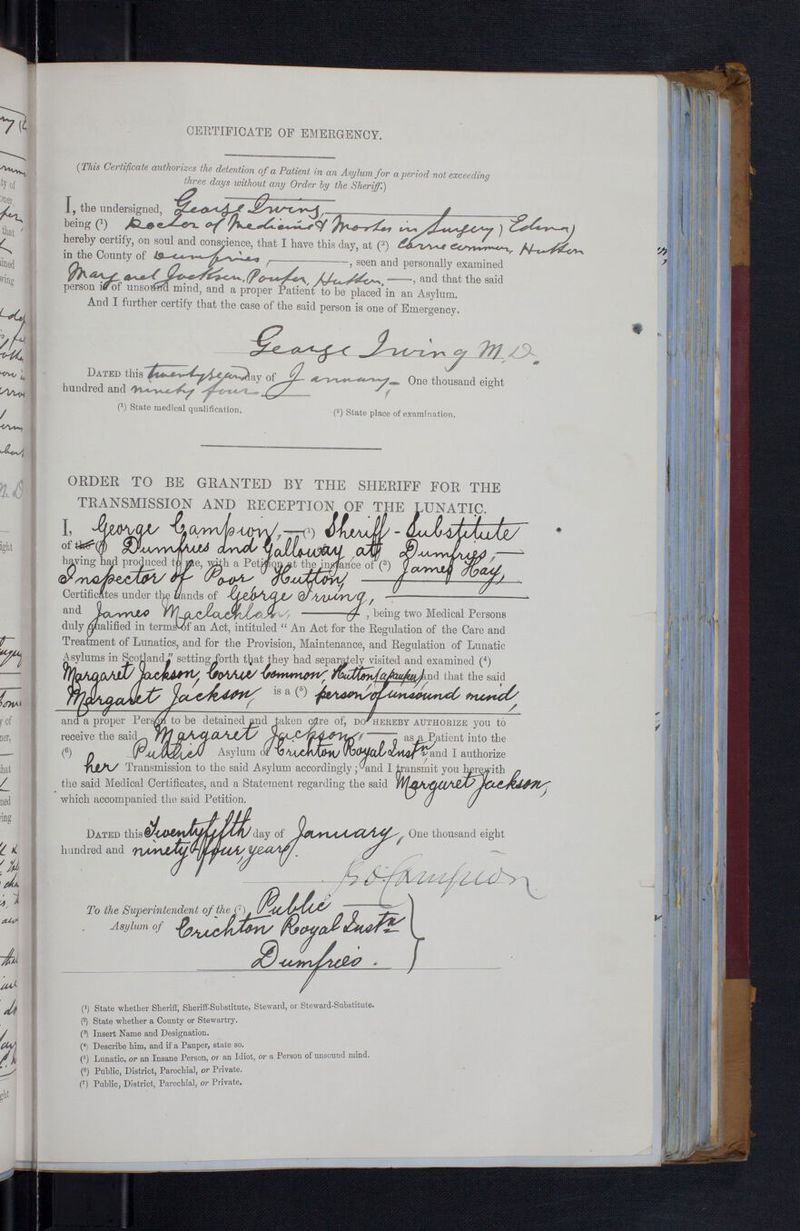 CERTIFICATE OF EMERGENCY.
(This Certificate authorizes the detention of a Patient in an Asylum for a period not exceeding
three days without any Order by the Sheriff.)
I, the undersigned, George Irving,
being (1) Doctor of Medicine & Master in Surgery, Edin.
hereby certify, on soul and conscience, that I have this day, at (2) Corrie Common, Hutton
in the County of Dumfries, seen and personally examined
Margaret Jackson, Pauper, Hutton, and that the said
person is of unsound mind, and a proper Patient to be placed in an Asylum.
And I further certify that the case of the said person is one of Emergency.
George Irving M.D.
DATED this day of January One thousand eight
hundred and ninety four
(1) State medical qualification.
(2) State place of examination.
ORDER TO BE GRANTED BY THE SHERIFF FOR THE
TRANSMISSION AND RECEPTION OF THE LUNATIC.
I, George Campion, (1) Sheriff-Substitute
of the (2) Dumfries and Galloway at Dumfries,
having had produced to me, with a Petition at the instance of (3) James Hay,
Inspector of Poor Hutton,
Certificates under the hands of George Irving,
and James Maclachlan, being two Medical Persons
duly qualified in terms of an Act, intituled "An Act for the Regulation of the Care and
Treatment of Lunatics, and for the Provision, Maintenance, and Regulation of Lunatic
Asylums in Scotland," setting forth that they had separately visited and examined (4)
Margaret Jackson, Corrie Common, Hutton (a pauper) and that the said
Margaret Jackson, is a (5) person of unsound mind,
and a proper Person to be detained and taken care of, DO HEREBY AUTHORIZE you to
receive the said Margaret Jackson, as a Patient into the
(6) Public Asylum of Crichton Royal Instn. and I authorize
her Transmission to the said Asylum accordingly; and I transmit you herewith
the said Medical Certificates, and a Statement regarding the said Margaret Jackson,
which accompanied the said Petition.
DATED this Twentyfifth day of January, One thousand eight
hundred and ninety four years.
To the Superintendent of the (7) Public
Asylum of Crichton Royal Instn.
Dumfries.
(1) State whether Sheriff, Sheriff-Substitute, Steward, or Steward-Substitute.
(2) State whether a County or Stewartry.
(3) Insert Name and Designation.
(4) Describe him, and if a Pauper, state so.
(5) Lunatic, or an Insane Person, or an Idiot, or a Person of unsound mind.
(6) Public, District, Parochial, or Private.
(7) Public, District, Parochial, or Private.